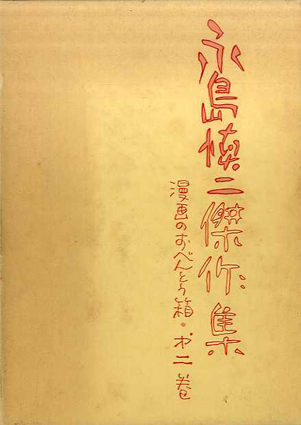 永島慎二傑作集
漫画のおべんとう箱・才二巻